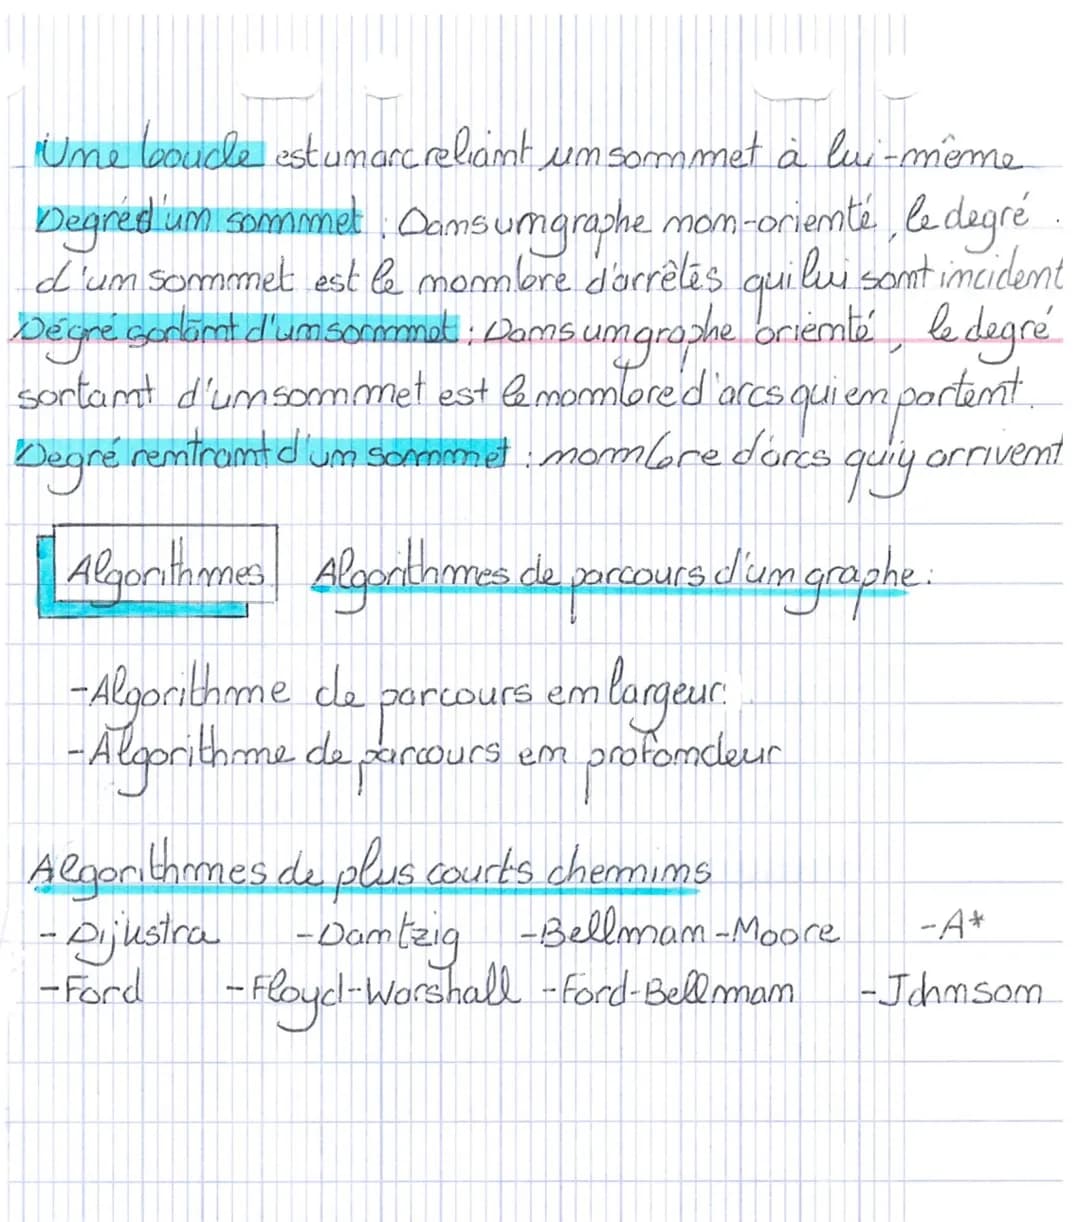 Une boucle est un arc reliant un sommet à lui-même
Degré d'un sommet : Dans un graphe non-orienté, le degré
d'un sommet est le nombre d'arrêtes qui lui sont incident
Dégré sortant d'un sommet : Dans un graphe orienté, le degré
sortant d'un sommet est le nombre d'arcs qui en partent.
Degré rentrant d'un sommet : nombre d'arcs qui y arrivent
Algorithmes Algorithmes de parcours d'un graphe :
-Algorithme de parcours en largeur.
-Algorithme de parcours en profondeur
Algorithmes de plus courts chemins
- Dijustra -Dantzig -Bellman-Moore -A*
-Ford -Floyd-Warshall -Ford-Bellman -Johnson